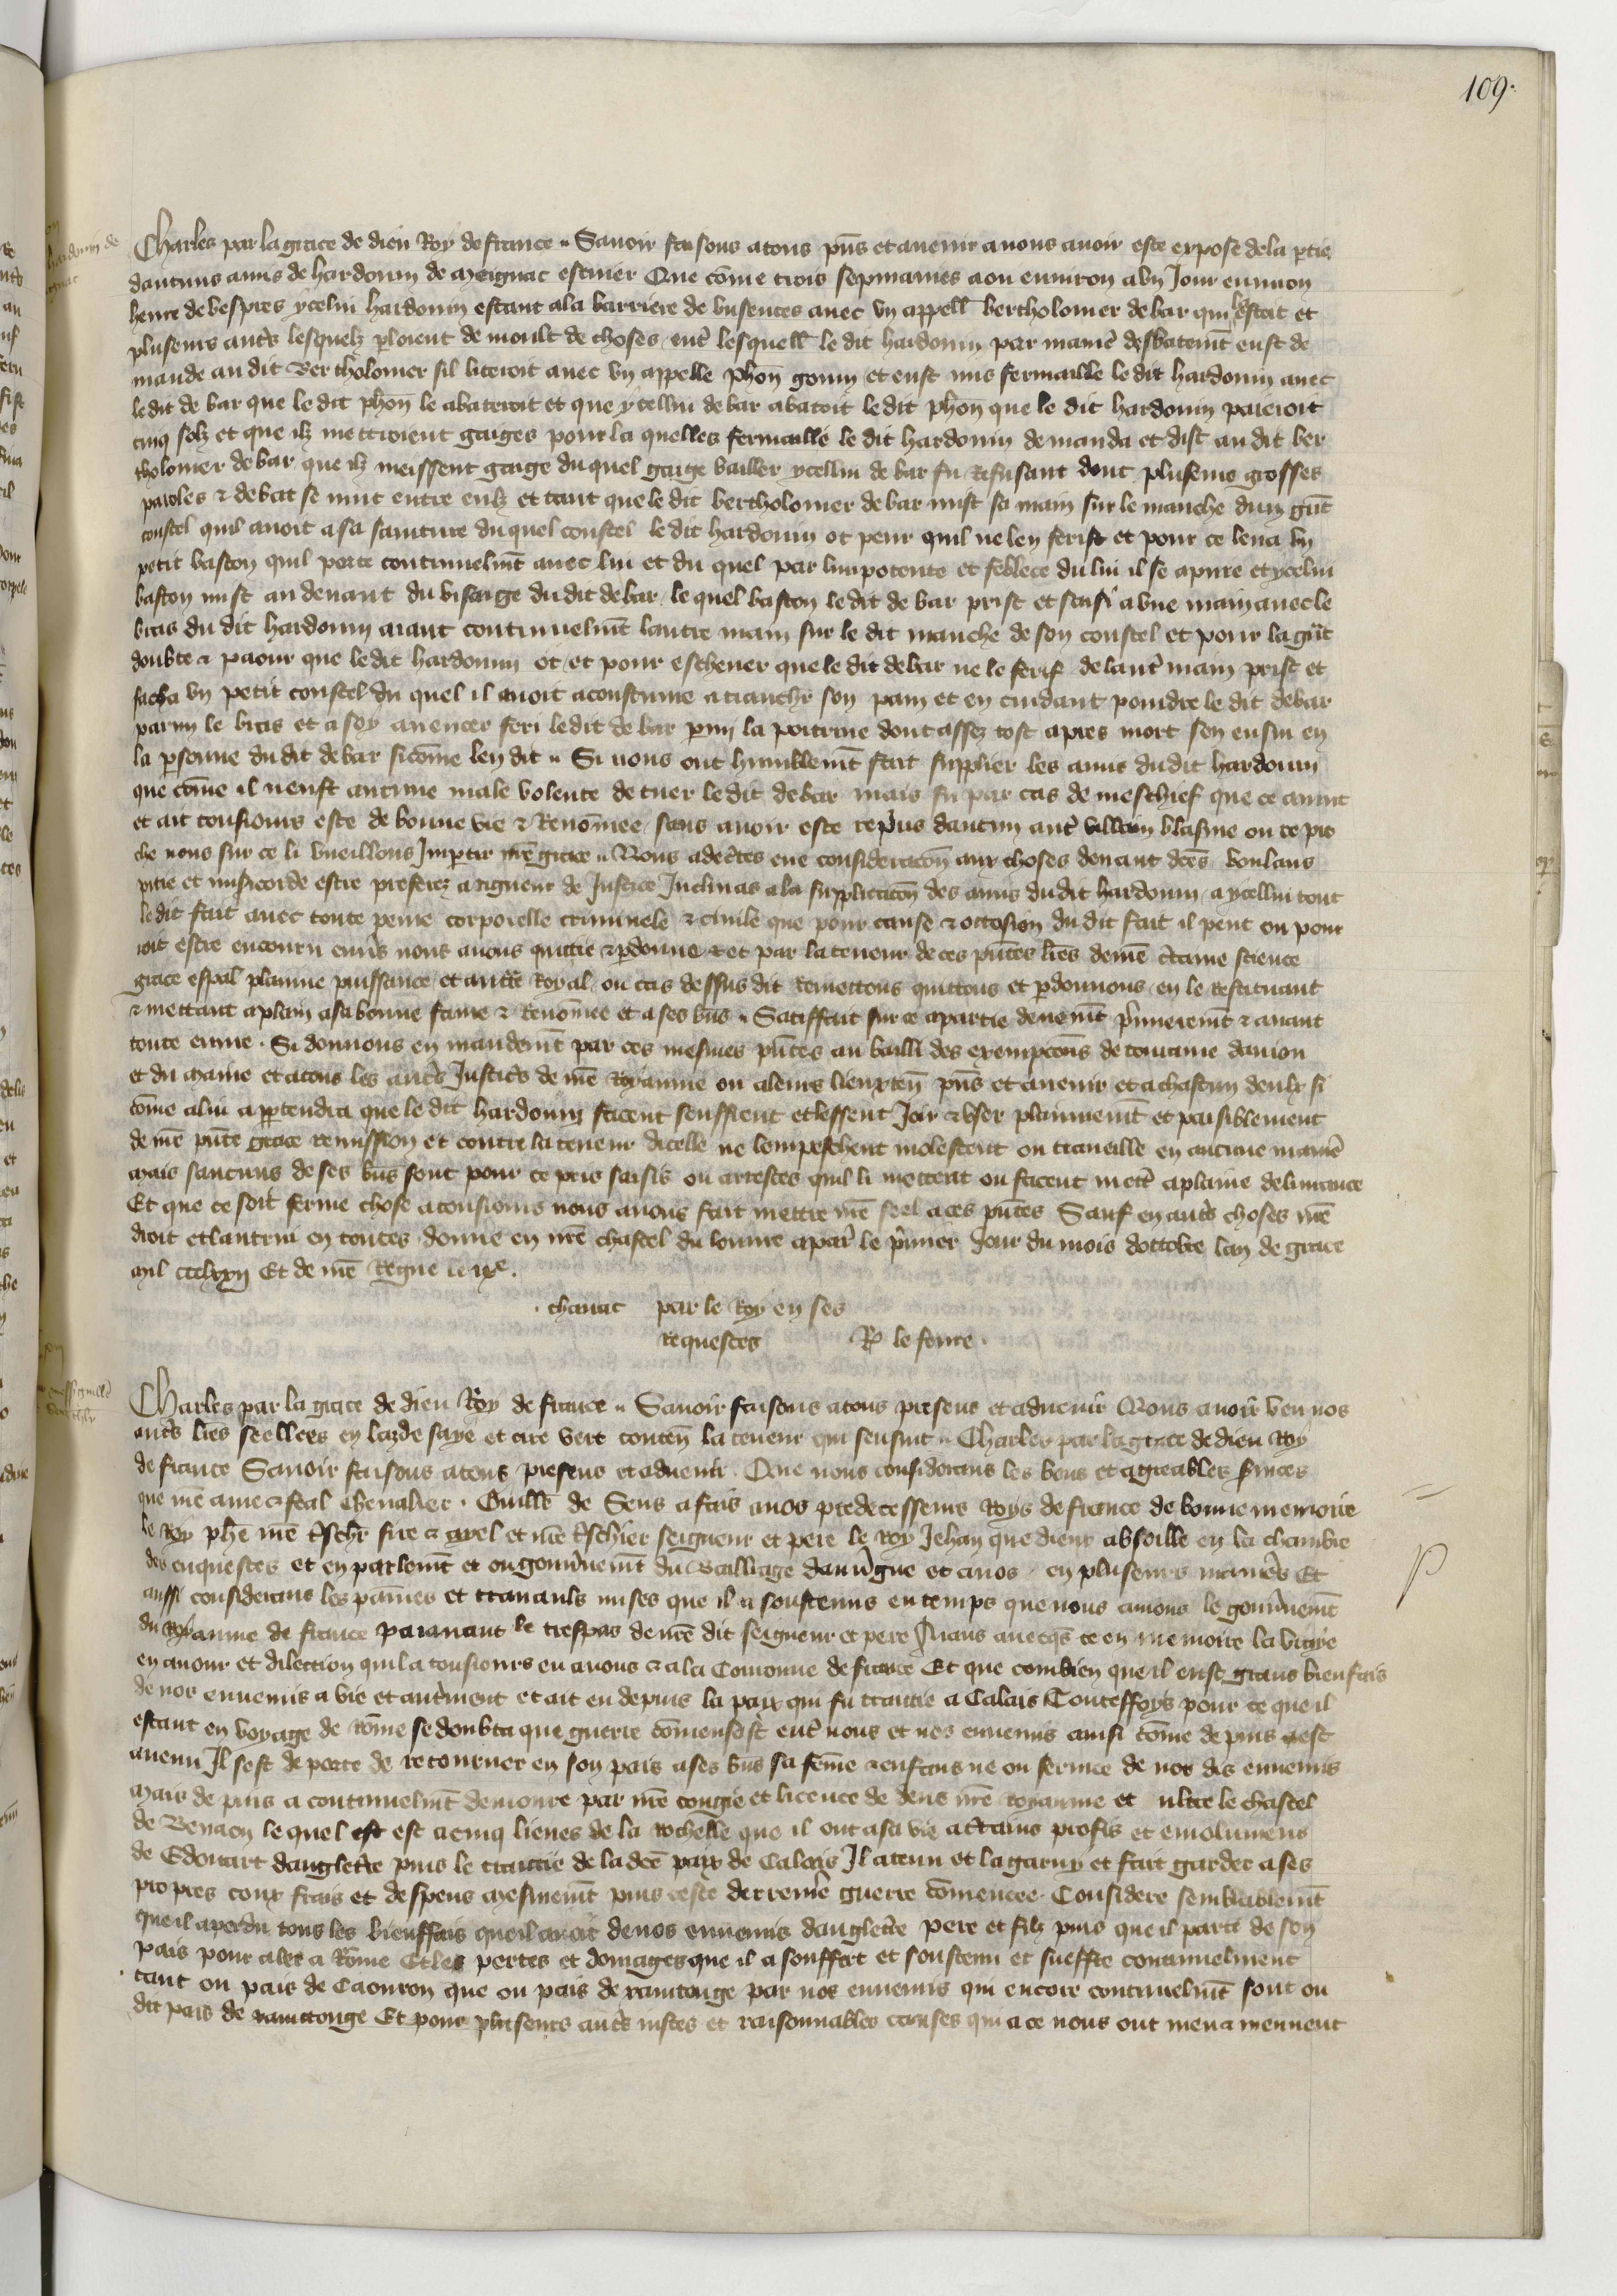 109.
Charles par la grace de dieu Roy de france Savoir faisons a tous pns et avenir a nous avoir este expose de la ptie
daucuns amis de hardouin de Meignac escuier Que come trois sepmaines a ou environ a un Jour environ
heure de vespres ycelui hardouin estant a la barriere de busences avec un appell bertholomer de bar qui estoit et
pluseurs autrs lesquelz ploient de moult de choses entr lesquell le dit hardouin par manier desbatemt eust de
mande au dit Bertholomer sil liteioit avec un appelle phon gouin et eust mis fermaille le dit hardouin avec
le dit de bar que le dit phon le abateroit et que ycellui de bar abatoit le dit phon que le dit hardouin paieroit
cinq solz et que ilz mettroient gaiges pour la quelles fermaille le dit hardouin demanda et dist au dit ber
tholomer de bar que ilz meissent gaige du quel gaige bailler ycellui de bar fu Refusant dont pluseurs grosses
paroles & debat se mut entre eulz et tant que le dit bertholomer de bar mist sa main sur le manche dun gnt
coustel quil avoit a sa sainture du quel coustel le dit hardouin ot peur quil ne len ferist et pour ce leva un
petit baston quil porte continuelmt avec lui et du quel par limpotence et feblece du lui il se apuie et ycelui
baston mist au devant du visaige du dit de bar le quel baston le dit de bar prist et saisi a une main avec le
bras du dit hardouin aiant continuelmt lautre main sur le dit manche de son coustel et pour la gnt
doubte & paour que le dit hardouin ot et pour eschever que le dit de bar ne le ferist de lautr main prist et
sacha un petit coustel du quel il avoit acoustume a tranchr son pain et en cuidant poindre le dit de bar
parmi le bras et a soy avencer feri le dit de bar pmi la poitrine dont assez tost apres mort sen ensui en
la psonne du dit de bar sicome len dit Si nous ont humblemt fait supplier les amis du dit hardouin
que come il neust aucune male volente de tuer le dit de bar mais fu par cas de meschief que ce avint
et ait tousiours este de bonne vie & Renomee sans avoir este repris daucun autr villain blasme ou repro
che nous sur ce li vueillons Impartir nre grace Nous adectes eue consideracon aux choses devant dces voulans
pitie et misericorde estre preferez a rigueur de Justice Inclinas a la supplicacon des amis du dit hardouin a ycellui tout
le dit fait avec toute peine corporelle criminele & civile que pour cause & occasion du dit fait il peut ou pour
roit estre encouru envrs nous avons quittie & pdonne et par la teneur de ces pntes lres de nre ctaine science
grace espal plainne puissance et auctte Royal ou cas dessus dit Remettons quittons et pdonnons en le restituant
& mettant a plain a sa bonne fame & Renomee et a ses bns Satiffait sur ce a partie devemt prmieremt & avant
toute euvre. Si donnons en mandemt par ces mesmes pntes au bailli des exempcons de touraine danjou
et du maine et a tous les autrs Justicrs de nre Royaume ou a leurs lieuxten pns et avenir et a chascun deulx si
come a lui appartendra que le dit hardouin facent seuffrent et lessent Joir & user plainnemt et paisiblement
de nre pnte grace remission et contre la teneur dicelle ne lempeschent molestent ou traveille en aucune manier
Mais saucuns de ses bns sont pour ce pris saisis ou arrestes quil li mettent ou facent mettr a plaine delivrance
Et que ce soit ferme chose a tousiours nous avons fait mettre nre seel a ces pntes Sauf en autrs choses nre
droit et lautrui en toutes donne en nre chastel du louvre a parr le prmier Jour du mois doctobre lan de grace
mil ccclxxii Et de nre Regne le ixe.
chanac par le Roy en ses
requestes R le fevre.
Charles par la grace de dieu Roy de france Savoir faisons a tous presens et advenir Nous avoir veu nos
autrs lres seellees en laz de saye et cire vert conten la teneur qui sensuit Charles par la grace de dieu Roy
de france Savoir faisons a tous presens et advenir. Que nous considerans les bons et agreables srvices
que nre ame & feal chevalier. Guille de Sens a fais a nos predecesseurs Roys de france de bonne memoire
le Roy phe nre trschr sire & ayel et nre trschier seigneur et pere le roy Jehan que dieux absoille en la chambre
des enquestes et en parlemt et ou gouvrnemt du Bailliage dauvrgne et a nos en pluseurs manirs Et
aussi considerans les paines et travauls mises que il a soustenus en temps que nous avions le gouvrnemt
du Royaume de france paravant le trespas de nre dit seigneur et pere Aians avecqs ce en memoire la vraye
en amour et dilection quil a tousiours eu a nous & a la Couronne de france Et que combien que il eust grans bienfais
de nos ennemis a vie et autrment et ait eu depuis la paix qui fu traittie a Calais Touteffoys pour ce que il
estant en voyage de Rome se doubta que guerre comensast entr nous et nos ennemis ainsi come depuis est
avenu Il sest deporte de retourner en son pais a ses bns sa feme & enfans ne ou service de nos dis ennemis
Mais depuis a continuelmt demoure par nre congie et licence de dens nre Royaume et ultre le chastel
de Benaon le quel est est a cinq lieues de la Rochelle que il ont a sa vie a crtains profis et emolumens
de Edouart dangletre puis le traittie de la dce paix de Calais Il a tenu et la garny et fait garder a ses
propres coux frais et despens mesmemt puis ceste derrenire guerre comencee. Considere semblablemt
que il a perdu tous les bienffais que il avoit de nos ennemis dangletre pere et filz puis que il parti de son
pais pour aler a Rome Et les pertes et domages que il a souffert et soustenu et sueffre continuelment
tant ou pais de Caourcin que ou pais de xantonge par nos ennemis qui encore continuelmt sont ou
dit pais de xanctonge Et pour pluseurs autrs justes et raisonnables causes qui a ce nous ont meu & meuvent